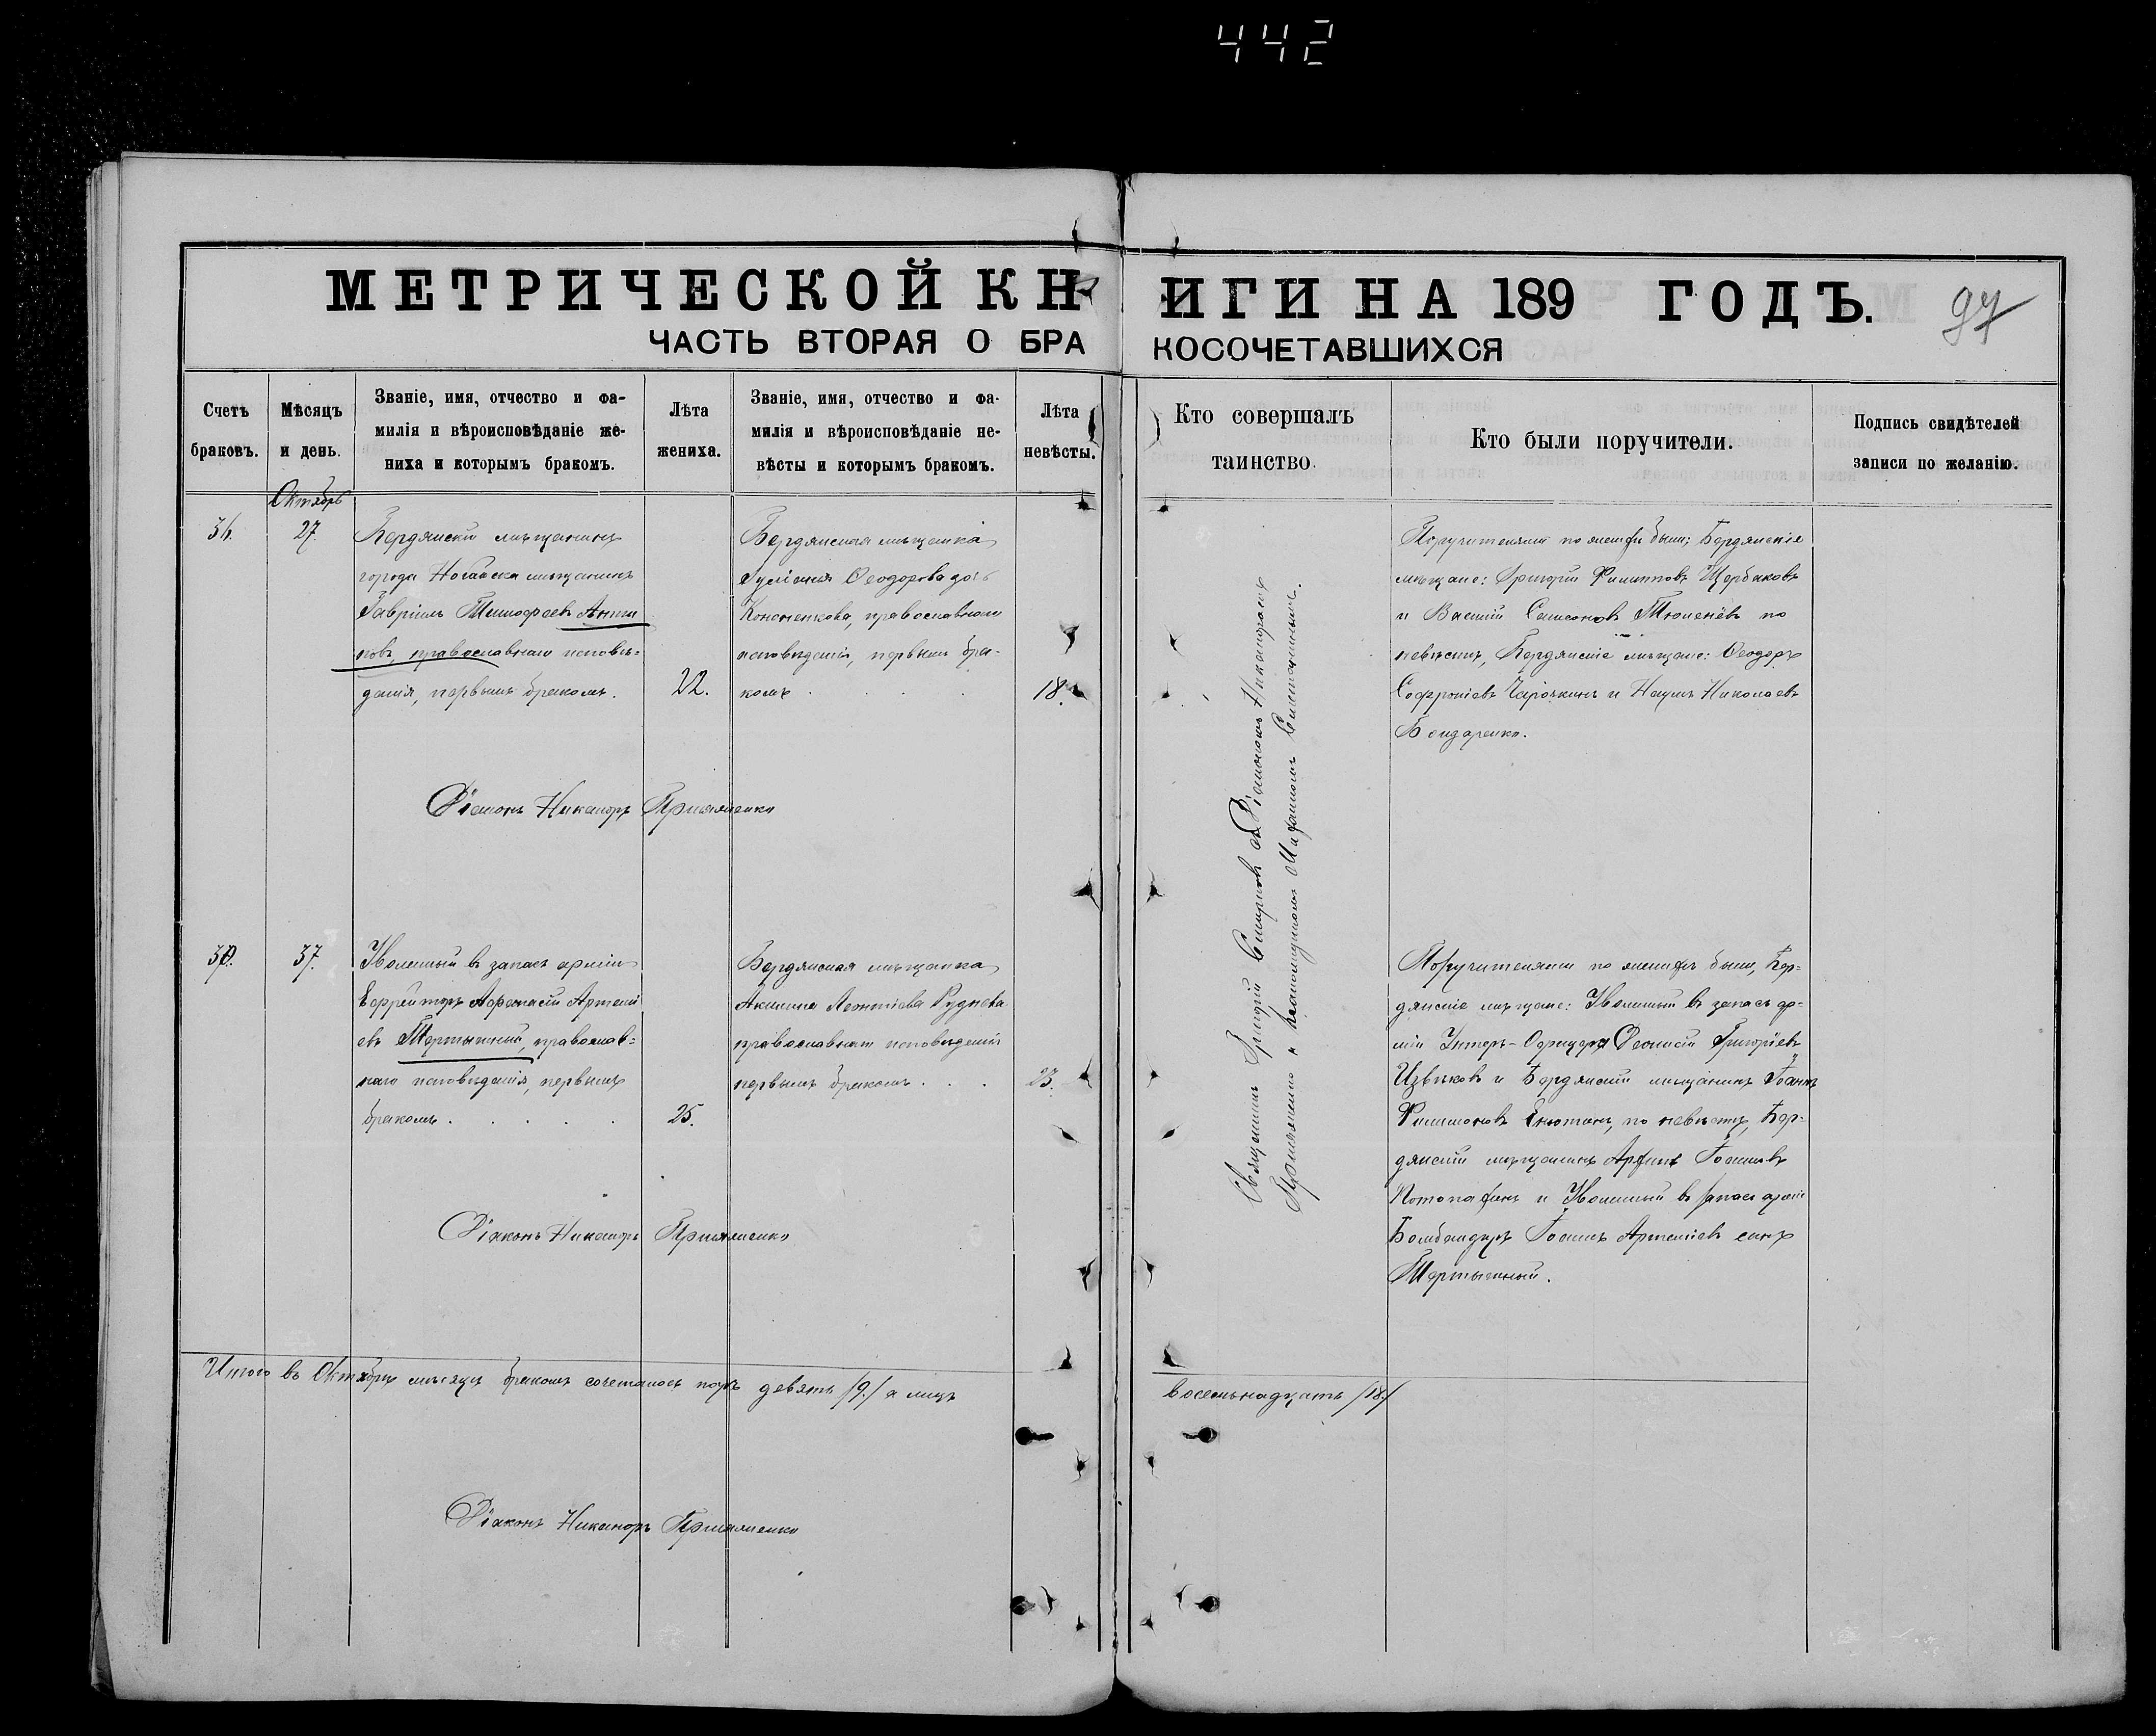 442
МЕТРИЧЕСКОЙ КНИГИ НА 189 ГОДЪ.
97
ЧАСТЬ ВТОРАЯ О БРАКОСОЧЕТАВШИХСЯ
Счетъ
браковъ.
Мѣсяцъ
и день.
Званіе, имя, отчество и фа-
милія и вѣроисповѣданіе же-
ниха и которымъ бракомъ.
Лѣта
жениха.
Званіе, имя, отчество и фа-
милія и вѣроисповѣданіе не-
вѣсты и которымъ бракомъ.
Лѣта
невѣсты.
Кто совершалъ
таинство.
Кто были поручители.
Подпись свидѣтелей
записи по желанію.
Октябрь
36.
27.
Бердянскій мѣщанинъ
города Ногайска мѣщанинъ
Гавріилъ Тимофеевъ
православнаго исповѣ-
данія, первымъ бракомъ.
22.
Бердянская мѣщанка
Іуліанія Ѳеодорова дочь
Кононенкова, православнаго
исповѣданія, первымъ бра-
комъ
18.
Поручителями по женихѣ были; Бердянскіе
мѣщане: Григорій Филипповъ Щербаковъ
и Василій Самсоновъ Тюленевъ по
невѣстѣ, Бердянскіе мѣщане: Ѳеодоръ
Софроніевъ и Наумъ Николаевъ
Бондаренко.
Діаконъ Никаноръ
Священникъ Григорій съ Діакономъ Никаноромъ
и псаломщикомъ
37.
Уволенный въ запасъ арміи
Ефрейторъ Афанасій Артемі
евъ Тертычный, православ-
наго исповѣданія, первымъ
бракомъ
25.
Бердянская мѣщанка
Акилина Леонтіева Руднева
православнаго исповѣданія
первымъ бракомъ
23.
Поручителями по женихѣ были, Бер-
дянскіе мѣщане: Уволенный въ запасъ ар-
міи Унтеръ-Офицеръ Григоріевъ
Извѣковъ и Бердянскій мѣщанинъ Іоаннъ
Филимоновъ по невѣстѣ, Бер-
дянскій мѣщанинъ Іоанновъ
и Уволенный въ запасъ арміи
Бомбандиръ Іоаннъ Артеміевъ сынъ
Тертычный.
Діаконъ Никаноръ
Итого въ Октябрѣ мѣсяцѣ бракомъ сочеталось паръ девять /9./ а лицъ восемьнадцать /18./
Діаконъ Никаноръ